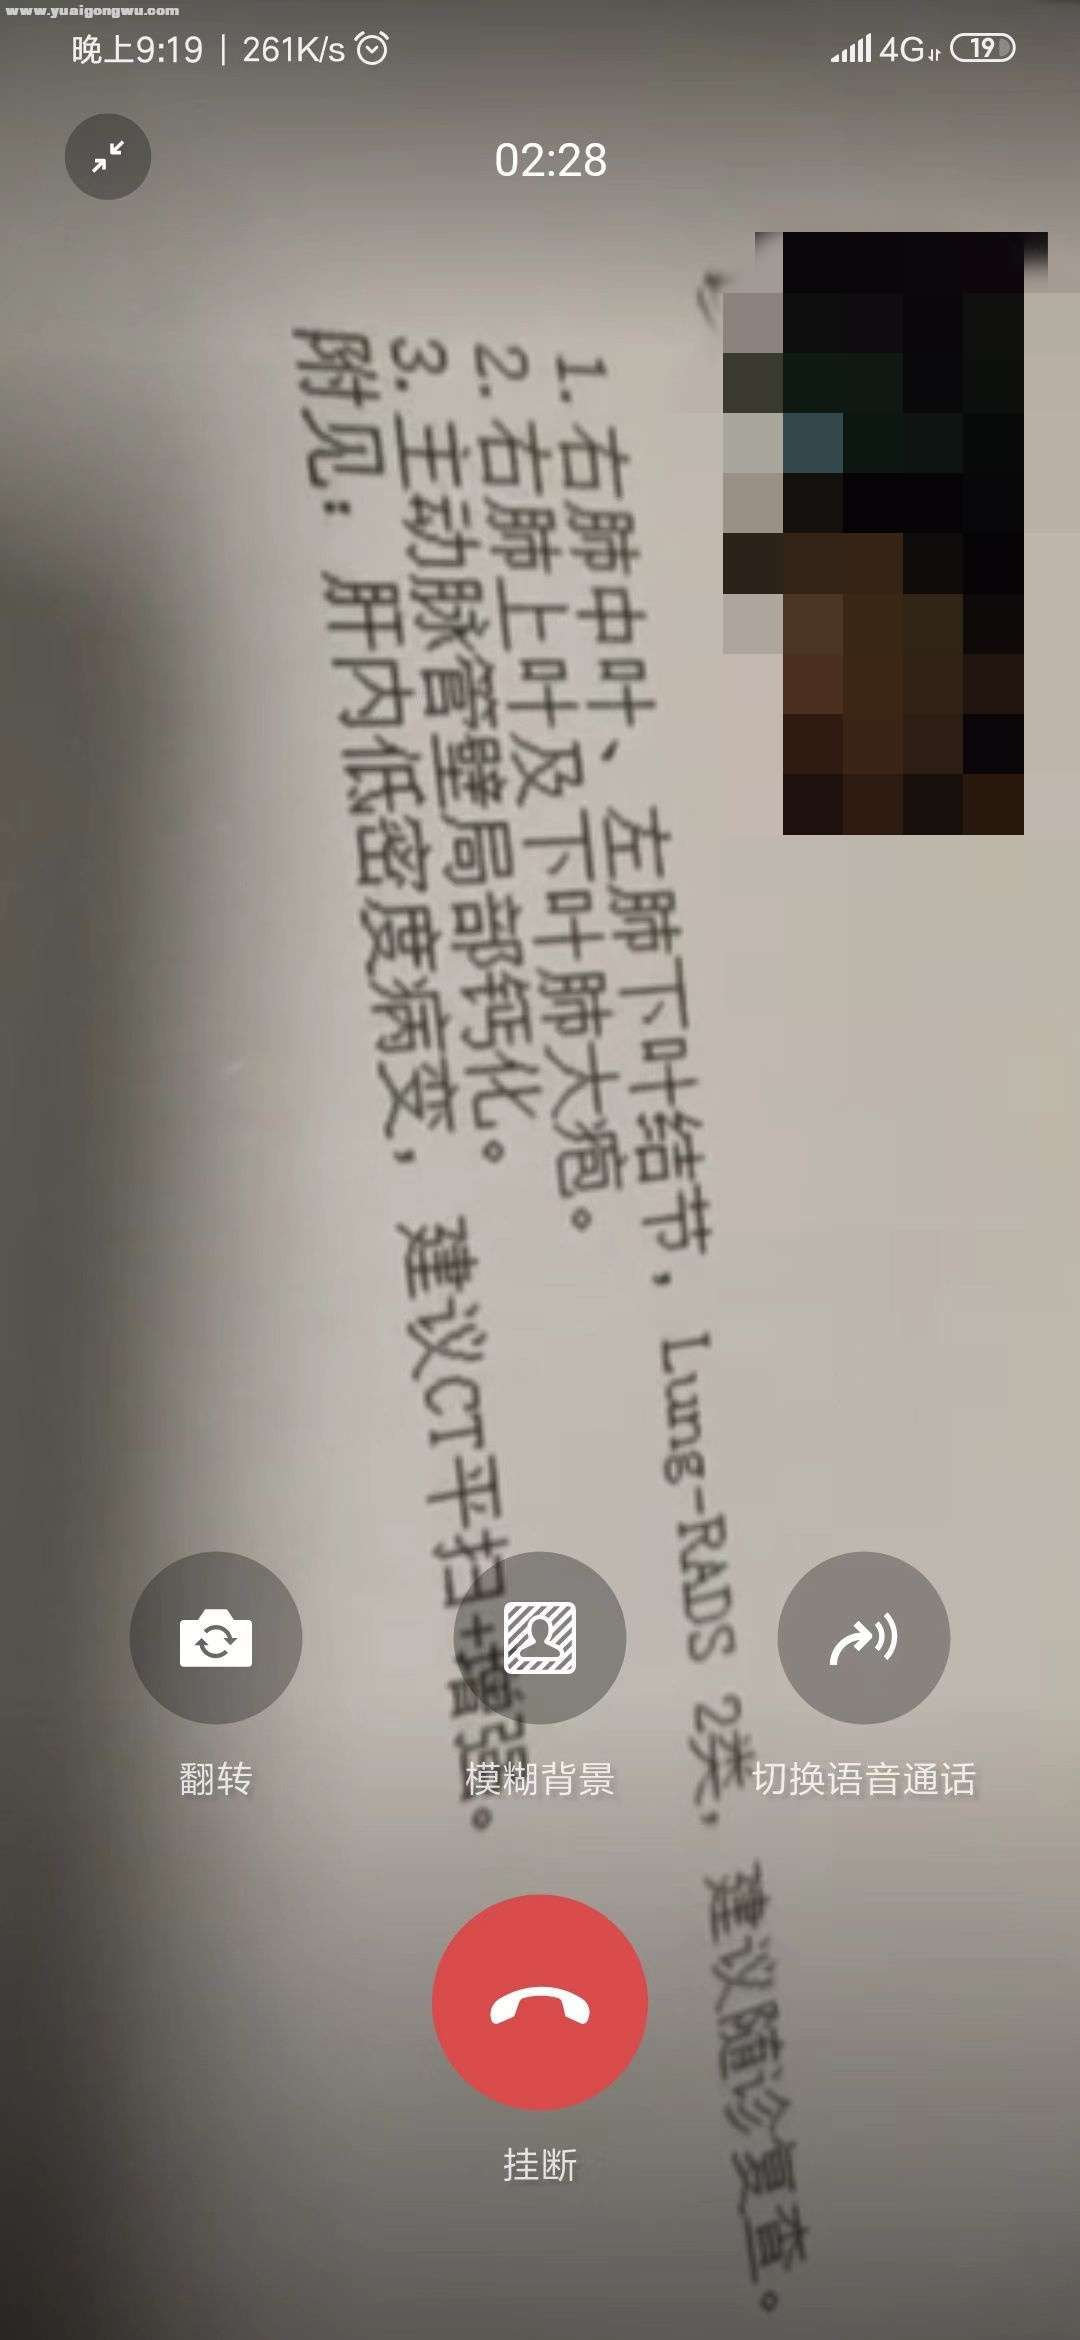 www.yuaigongwu.com
晚上9:19 | 261K/s
4G 19
02:28
1.右肺中叶、左肺下叶结节，Lung-RADS 2类，建议随诊复查。
2.右肺上叶及下叶肺大疱。
3.主动脉管壁局部钙化。
附见：肝内低密度病变，建议CT平扫+增强。
翻转
模糊背景
切换语音通话
挂断